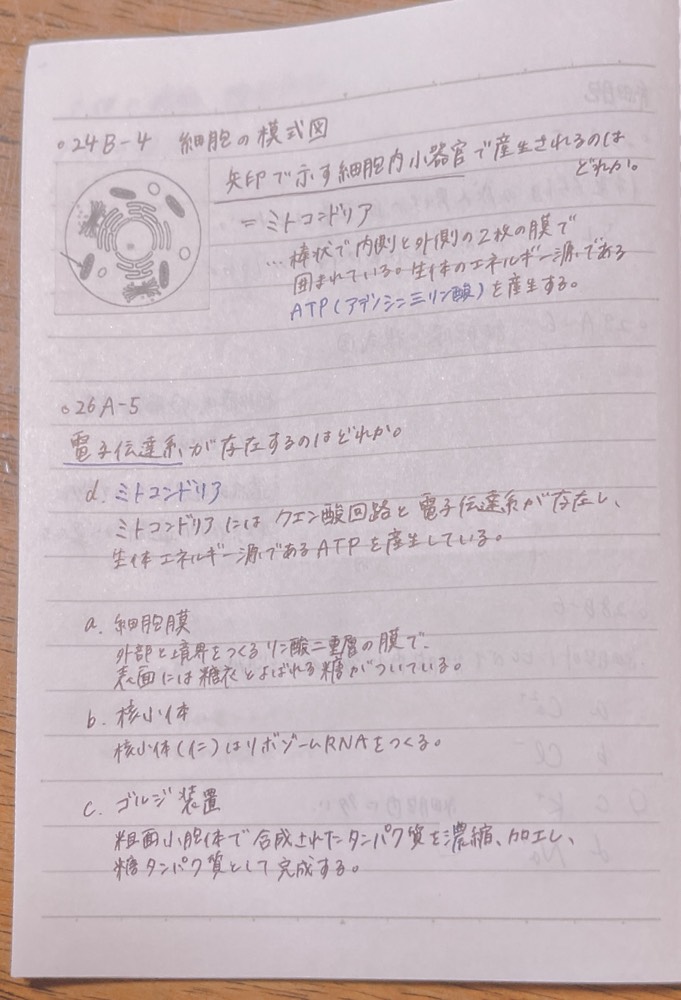 ○24B-4 細胞の模式図
矢印で示す細胞内小器官で産生されるのは
どれか。
=ミトコンドリア
…棒状で内側と外側の2枚の膜で
囲まれている。生体のエネルギー源である
ATP(アデノシン三リン酸)を産生する。
○26A-5
電子伝達系が存在するのはどれか。
d. ミトコンドリア
ミトコンドリアにはクエン酸回路と電子伝達系が存在し、
生体エネルギー源であるATPを産生している。
a. 細胞膜
外部と境界をつくるリン酸二重層の膜で、
表面には糖衣とよばれる糖がついている。
b. 核小体
核小体(仁)はリボゾームRNAをつくる。
c. ゴルジ装置
粗面小胞体で合成されたタンパク質を濃縮、加工し、
糖タンパク質として完成する。